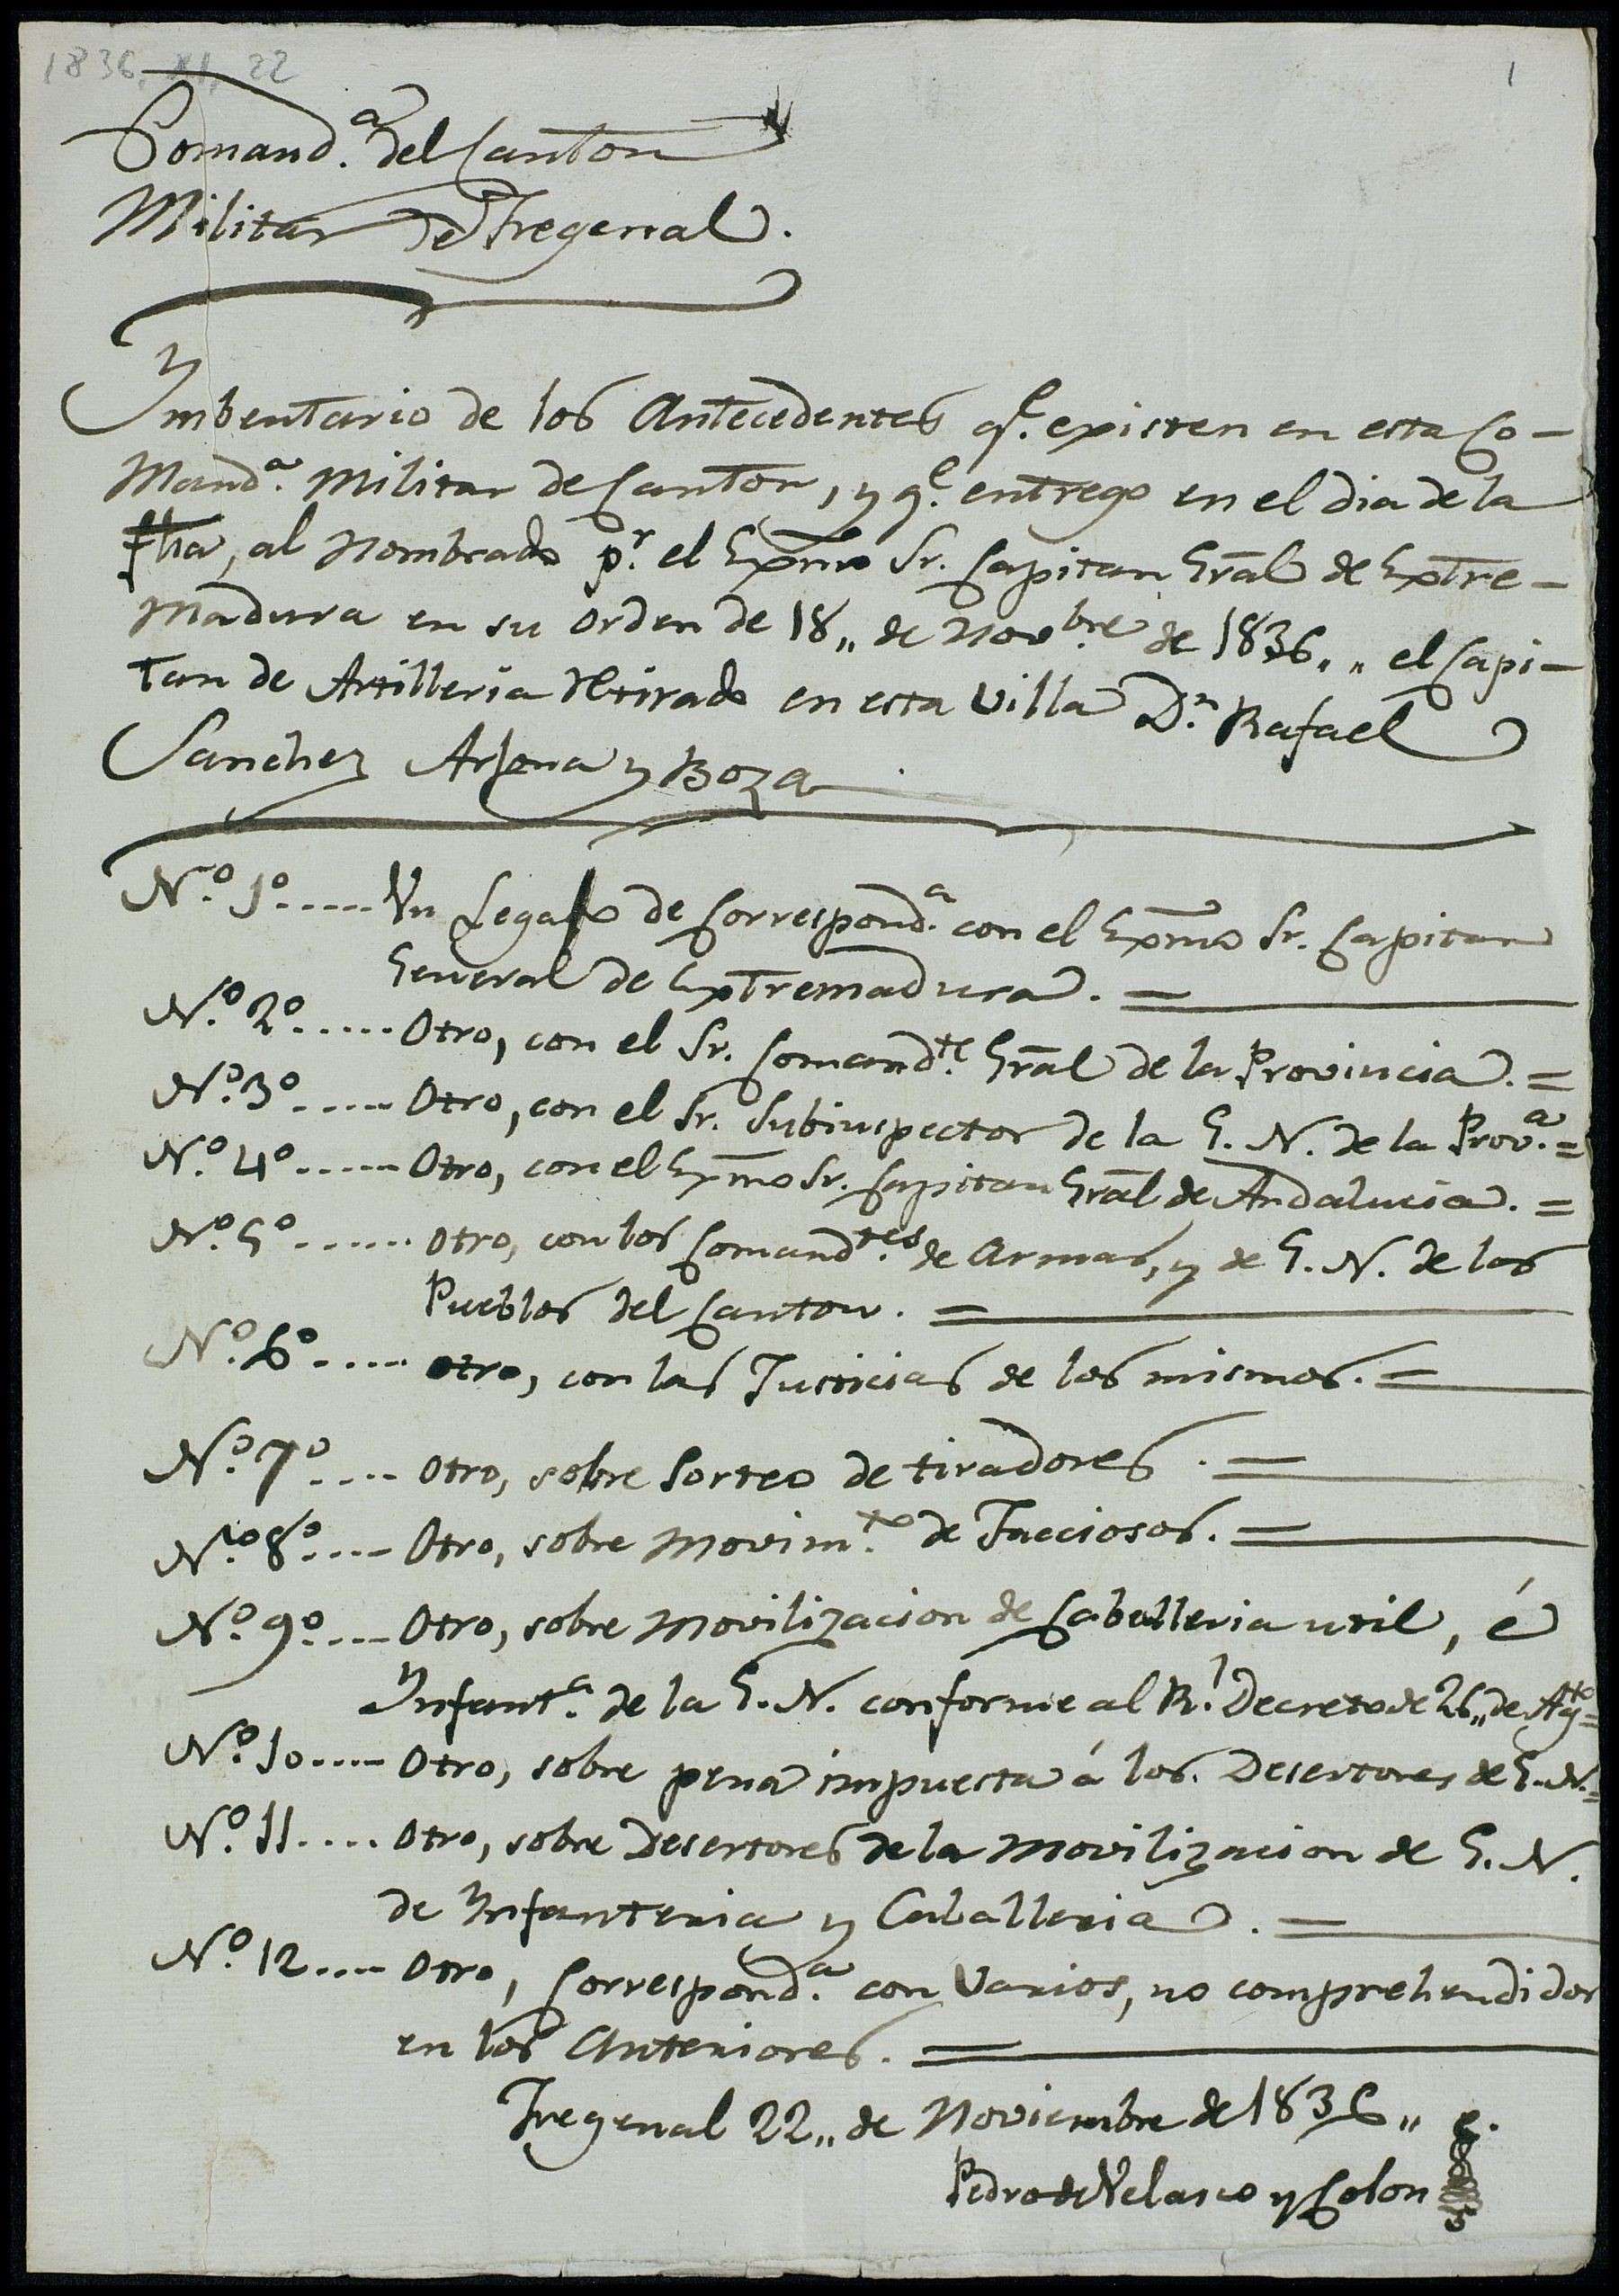 1836, XI, 22
1
Comand.ª del Canton
Militar de Fregenal.
Ymbentario de los Antecedentes q.e existen en esta Co-
mand.ª Militar de Canton, y q.e entrego en el dia de la
fha, al nombrado p.r el Exmo Sr. Capitan Gral de Extre-
madura en su orden de 18,, de Novbre de 1836,, el Capi-
tan de Artilleria Retirado en esta Villa D.n Rafael
Sanchez Arjona y Boza
N.º 1º...... Un Legajo de Correspond.ª con el Exmo Sr. Capitan
General de Extremadura. =
N.º 2º...... Otro, con el Sr. Comand.te Gral de la Provincia. =
N.º 3º...... Otro, con el Sr. Subinspector de la G. N. de la Prov.ª =
N.º 4º...... Otro, con el Exmo Sr. Capitan Gral de Andalucia. =
N.º 5º...... Otro, con los Comand.tes de Armas, y de G. N. de los
Pueblos del Canton. =
N.º 6º..... Otro, con las Justicias de los mismos. =
N.º 7º.... Otro, sobre Sorteo de tiradores. =
N.º 8º.... Otro, sobre movim.to de Facciosos. =
N.º 9º.... Otro, sobre movilizacion de Caballeria util, é
Ynfant.ª de la G. N. conforme al R.l Decreto de 26,, de Ag.to =
N.º 10.... Otro, sobre pena impuesta á los Desertores de G. N. =
N.º 11.... Otro, sobre Desertores de la movilizacion de G. N.
de Ynfanteria y Caballeria. =
N.º 12.... Otro, Correspond.ª con varios, no comprehendidos
en los Anteriores. =
Fregenal 22,, de Noviembre de 1836,,
Pedro de Velasco y Colon